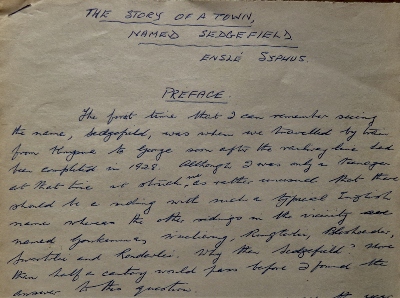 THE STORY OF A TOWN,
NAMED SEDGEFIELD
PREFACE.
The first time that I can remember seeing
the name, Sedgefield, was when we travelled by train
from Knysna to George soon after the railway line had
been completed in 1928. Although I was only a teenager
at that time it struck me as rather unusual that there
should be a siding with such a typical English
name whereas the other sidings in the vicinity were
named Goukamma, Ruigtevlei, Bleshoender,
Swartvlei and Rondevlei. Why then Sedgefield? More
than half a century would pass before I found the
answer to this question.